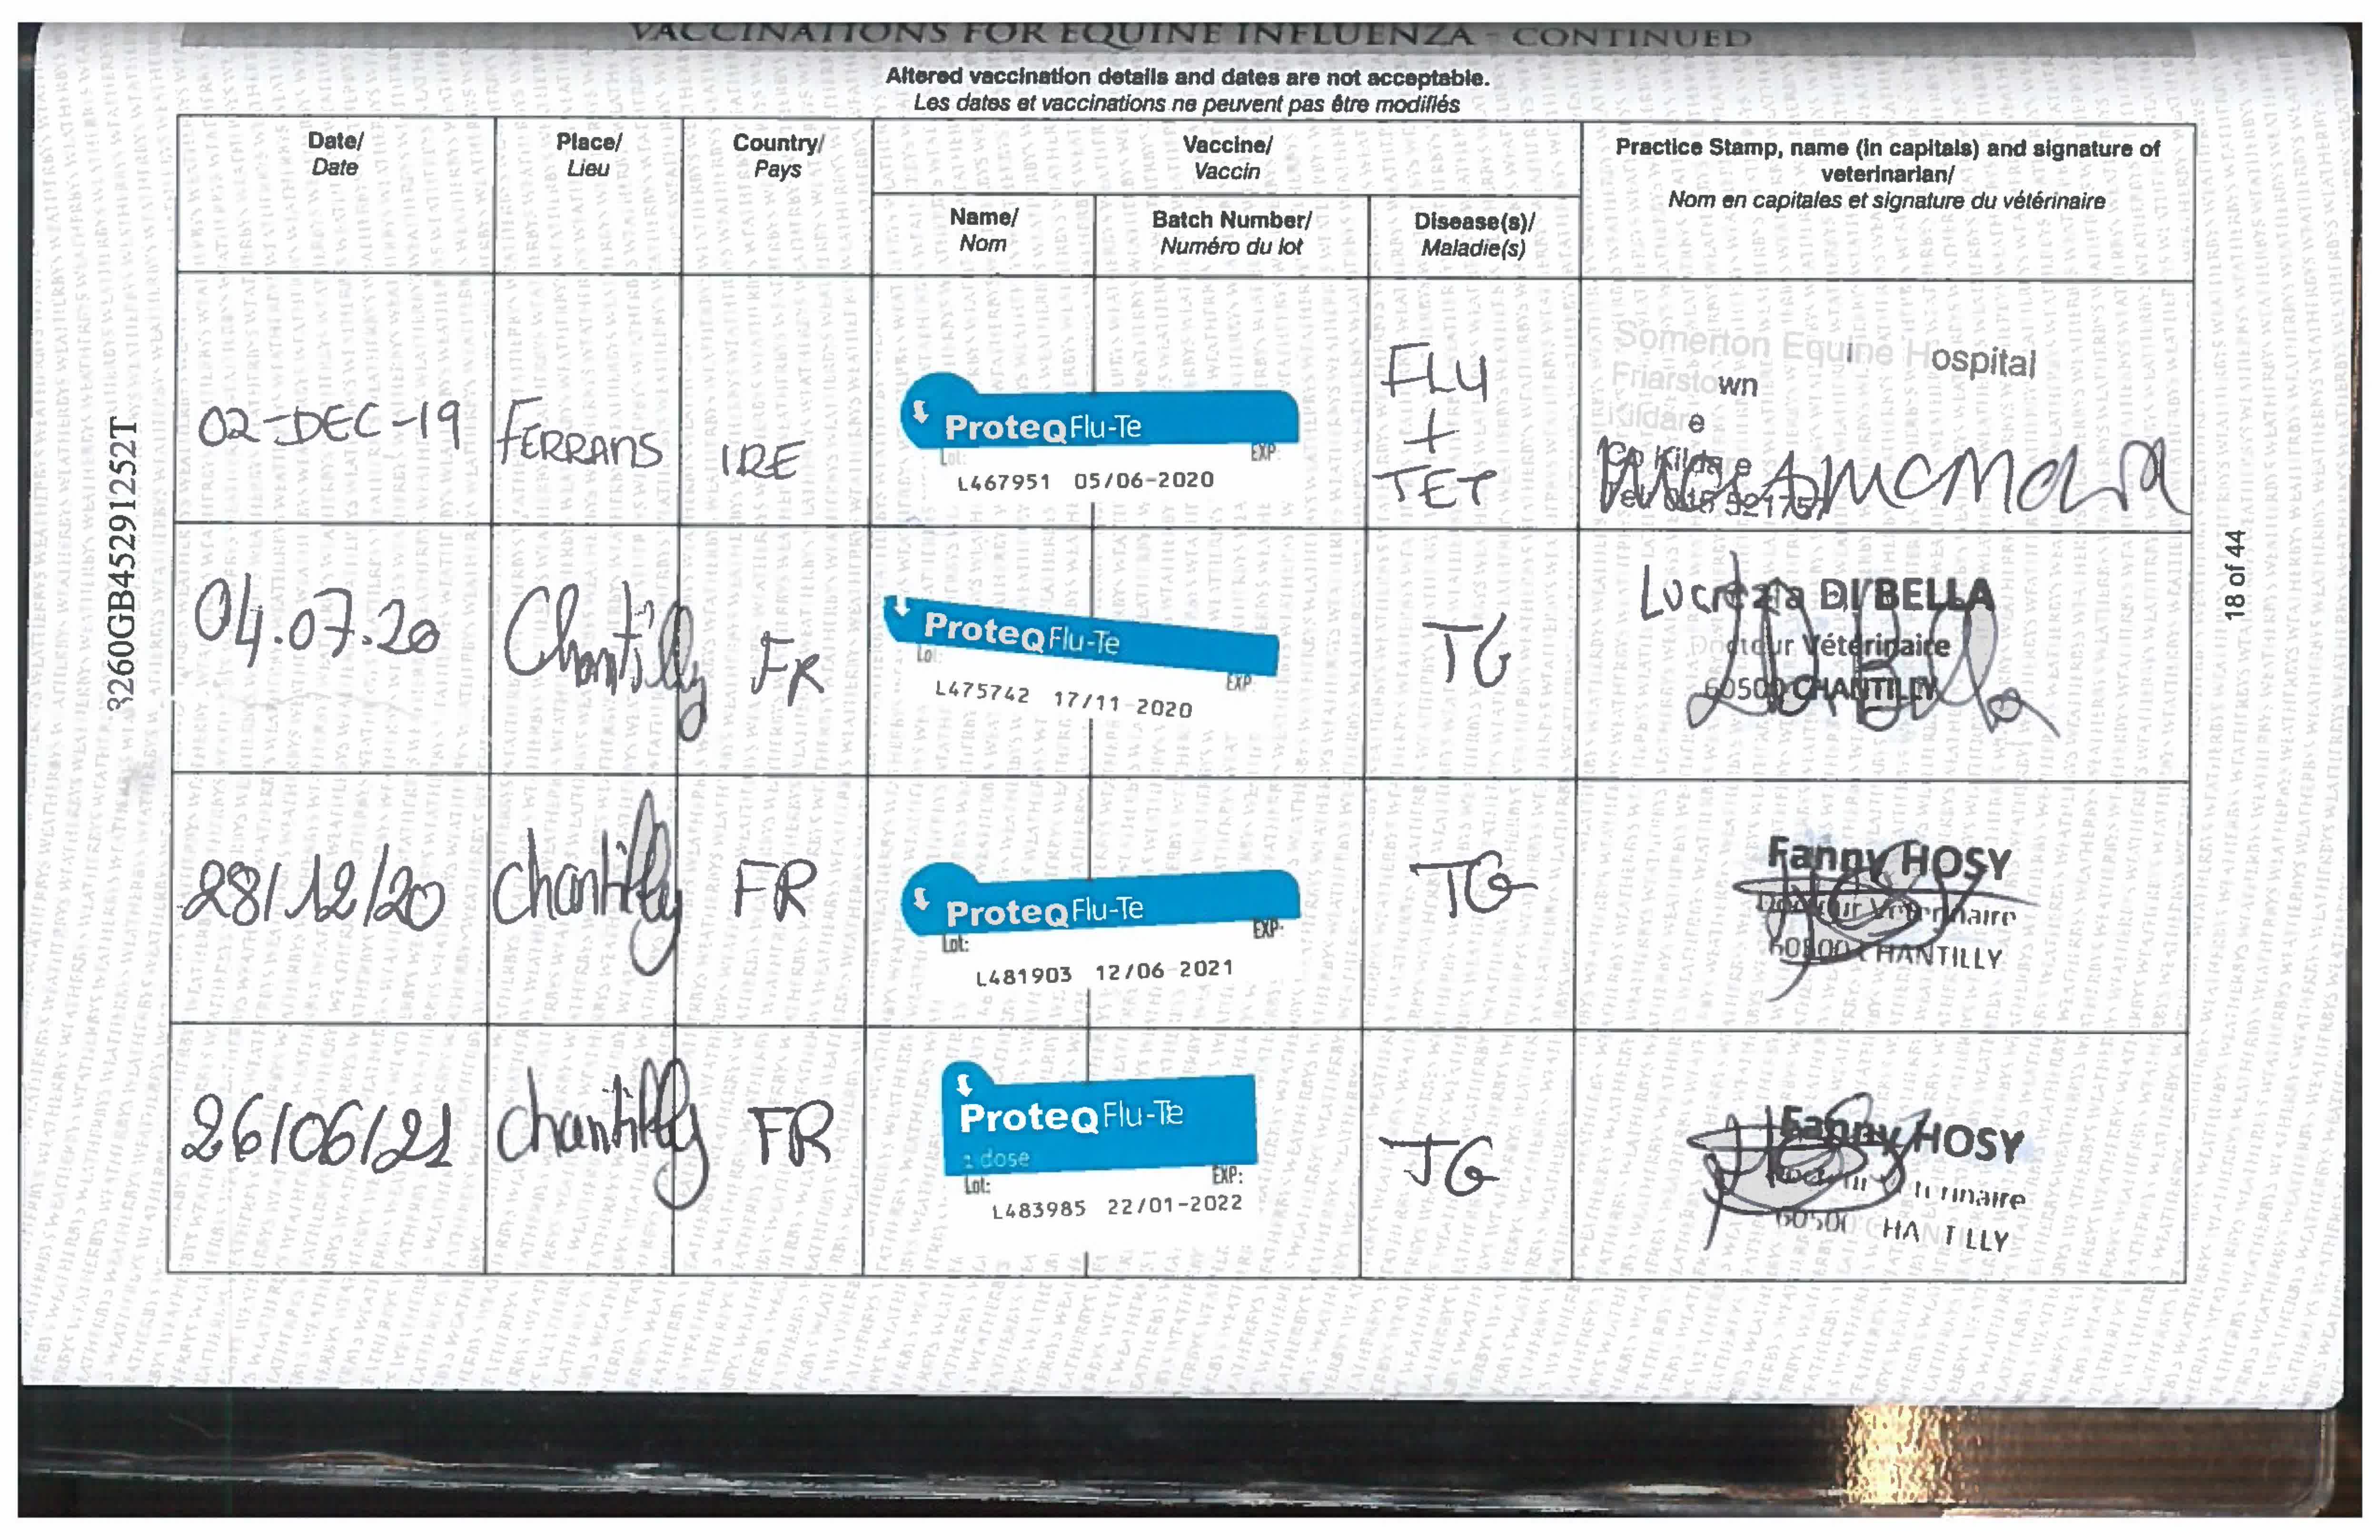 VACCINATIONS FOR EQUINE INFLUENZA - CONTINUED
Altered vaccination details and dates are not acceptable.
Les dates et vaccinations ne peuvent pas être modifiés
Date/
Date
Place/
Lieu
Country/
Pays
Vaccine/
Vaccin
Name/
Nom
Batch Number/
Numéro du lot
Disease(s)/
Maladie(s)
Practice Stamp, name (in capitals) and signature of
veterinarian/
Nom en capitales et signature du vétérinaire
02-DEC-19
FERRANS
IRE
ProteqFlu-Te
Lot: EXP
L467951 05/06-2020
FLU
+
TET
Somerton Equine Hospital
Friarstown
Kildare
Co Kildare
04.07.20
Chantilly
FR
ProteqFlu-Te
Lo EXP
L475742 17/11 2020
TG
Lucrezia DI BELLA
Docteur Vétérinaire
60500 CHANTILLY
28/12/20
Chantilly
FR
ProteqFlu-Te
Lot: EXP:
L481903 12/06 2021
TG
Fanny HOSY
Docteur Vétérinaire
60500 CHANTILLY
26/06/21
Chantilly
FR
ProteqFlu-Te
1 dose
Lot: EXP:
L483985 22/01-2022
TG
Fanny HOSY
Docteur Vétérinaire
60500 CHANTILLY
8260GB45291252T
18 of 44